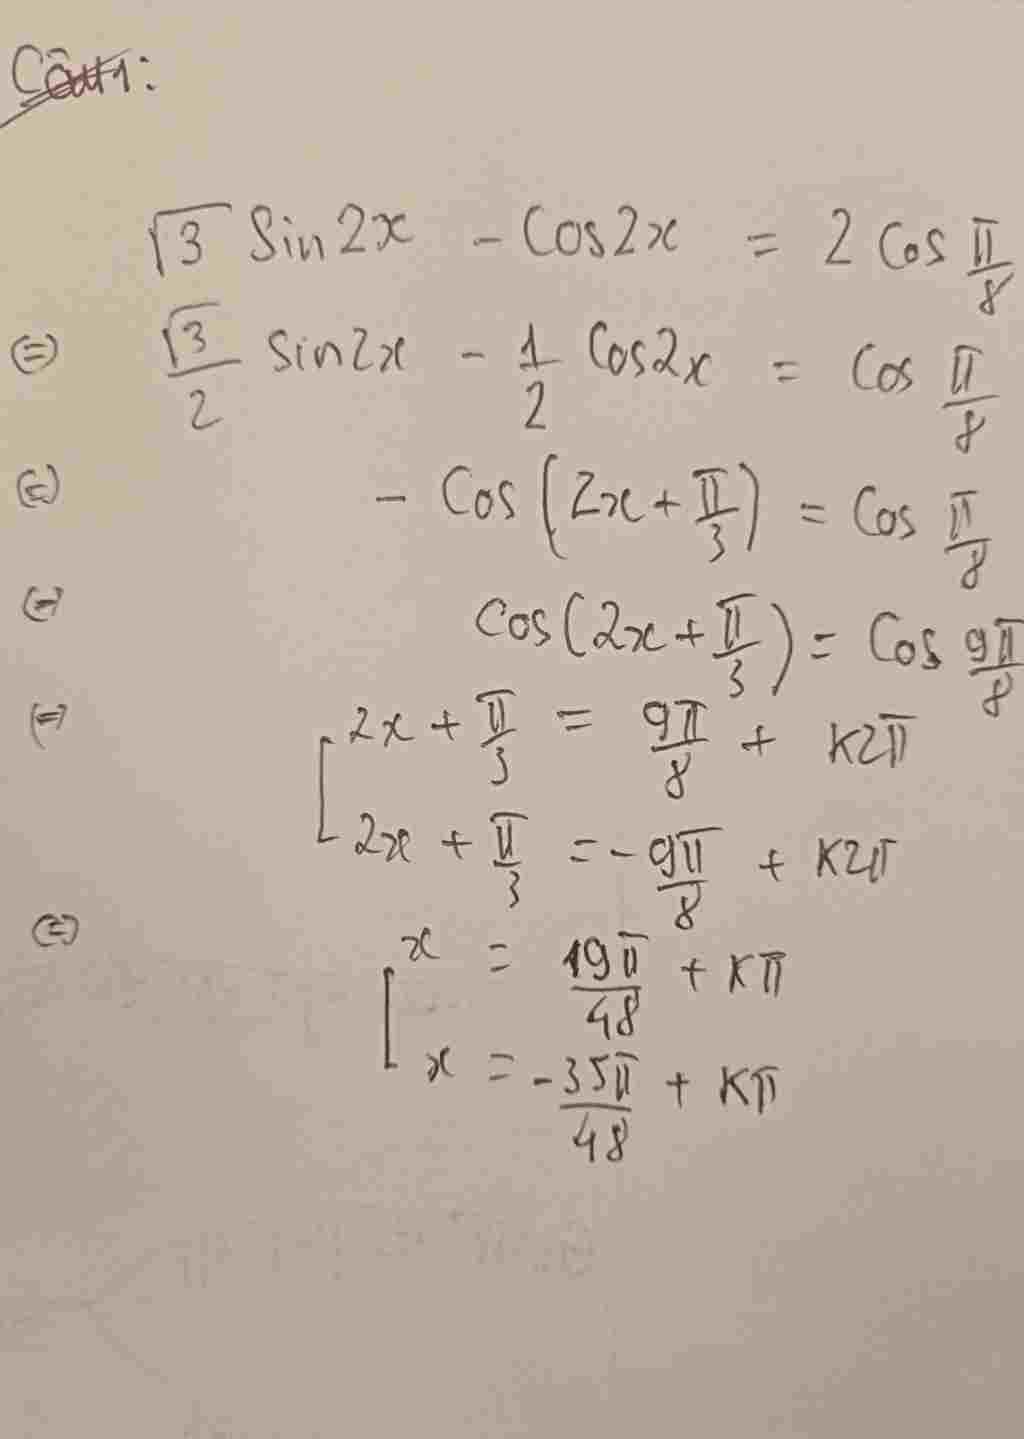 Câu 1:
√3 Sin2x - Cos2x = 2 Cos π/8
⇔ √3/2 sin2x - 1/2 Cos2x = Cos π/8
⇔ - Cos(2x + π/3) = Cos π/8
⇔ cos(2x + π/3) = Cos 9π/8
⇔ [ 2x + π/3 = 9π/8 + K2π
2x + π/3 = - 9π/8 + K2π
⇔ [ x = 19π/48 + Kπ
x = - 35π/48 + Kπ